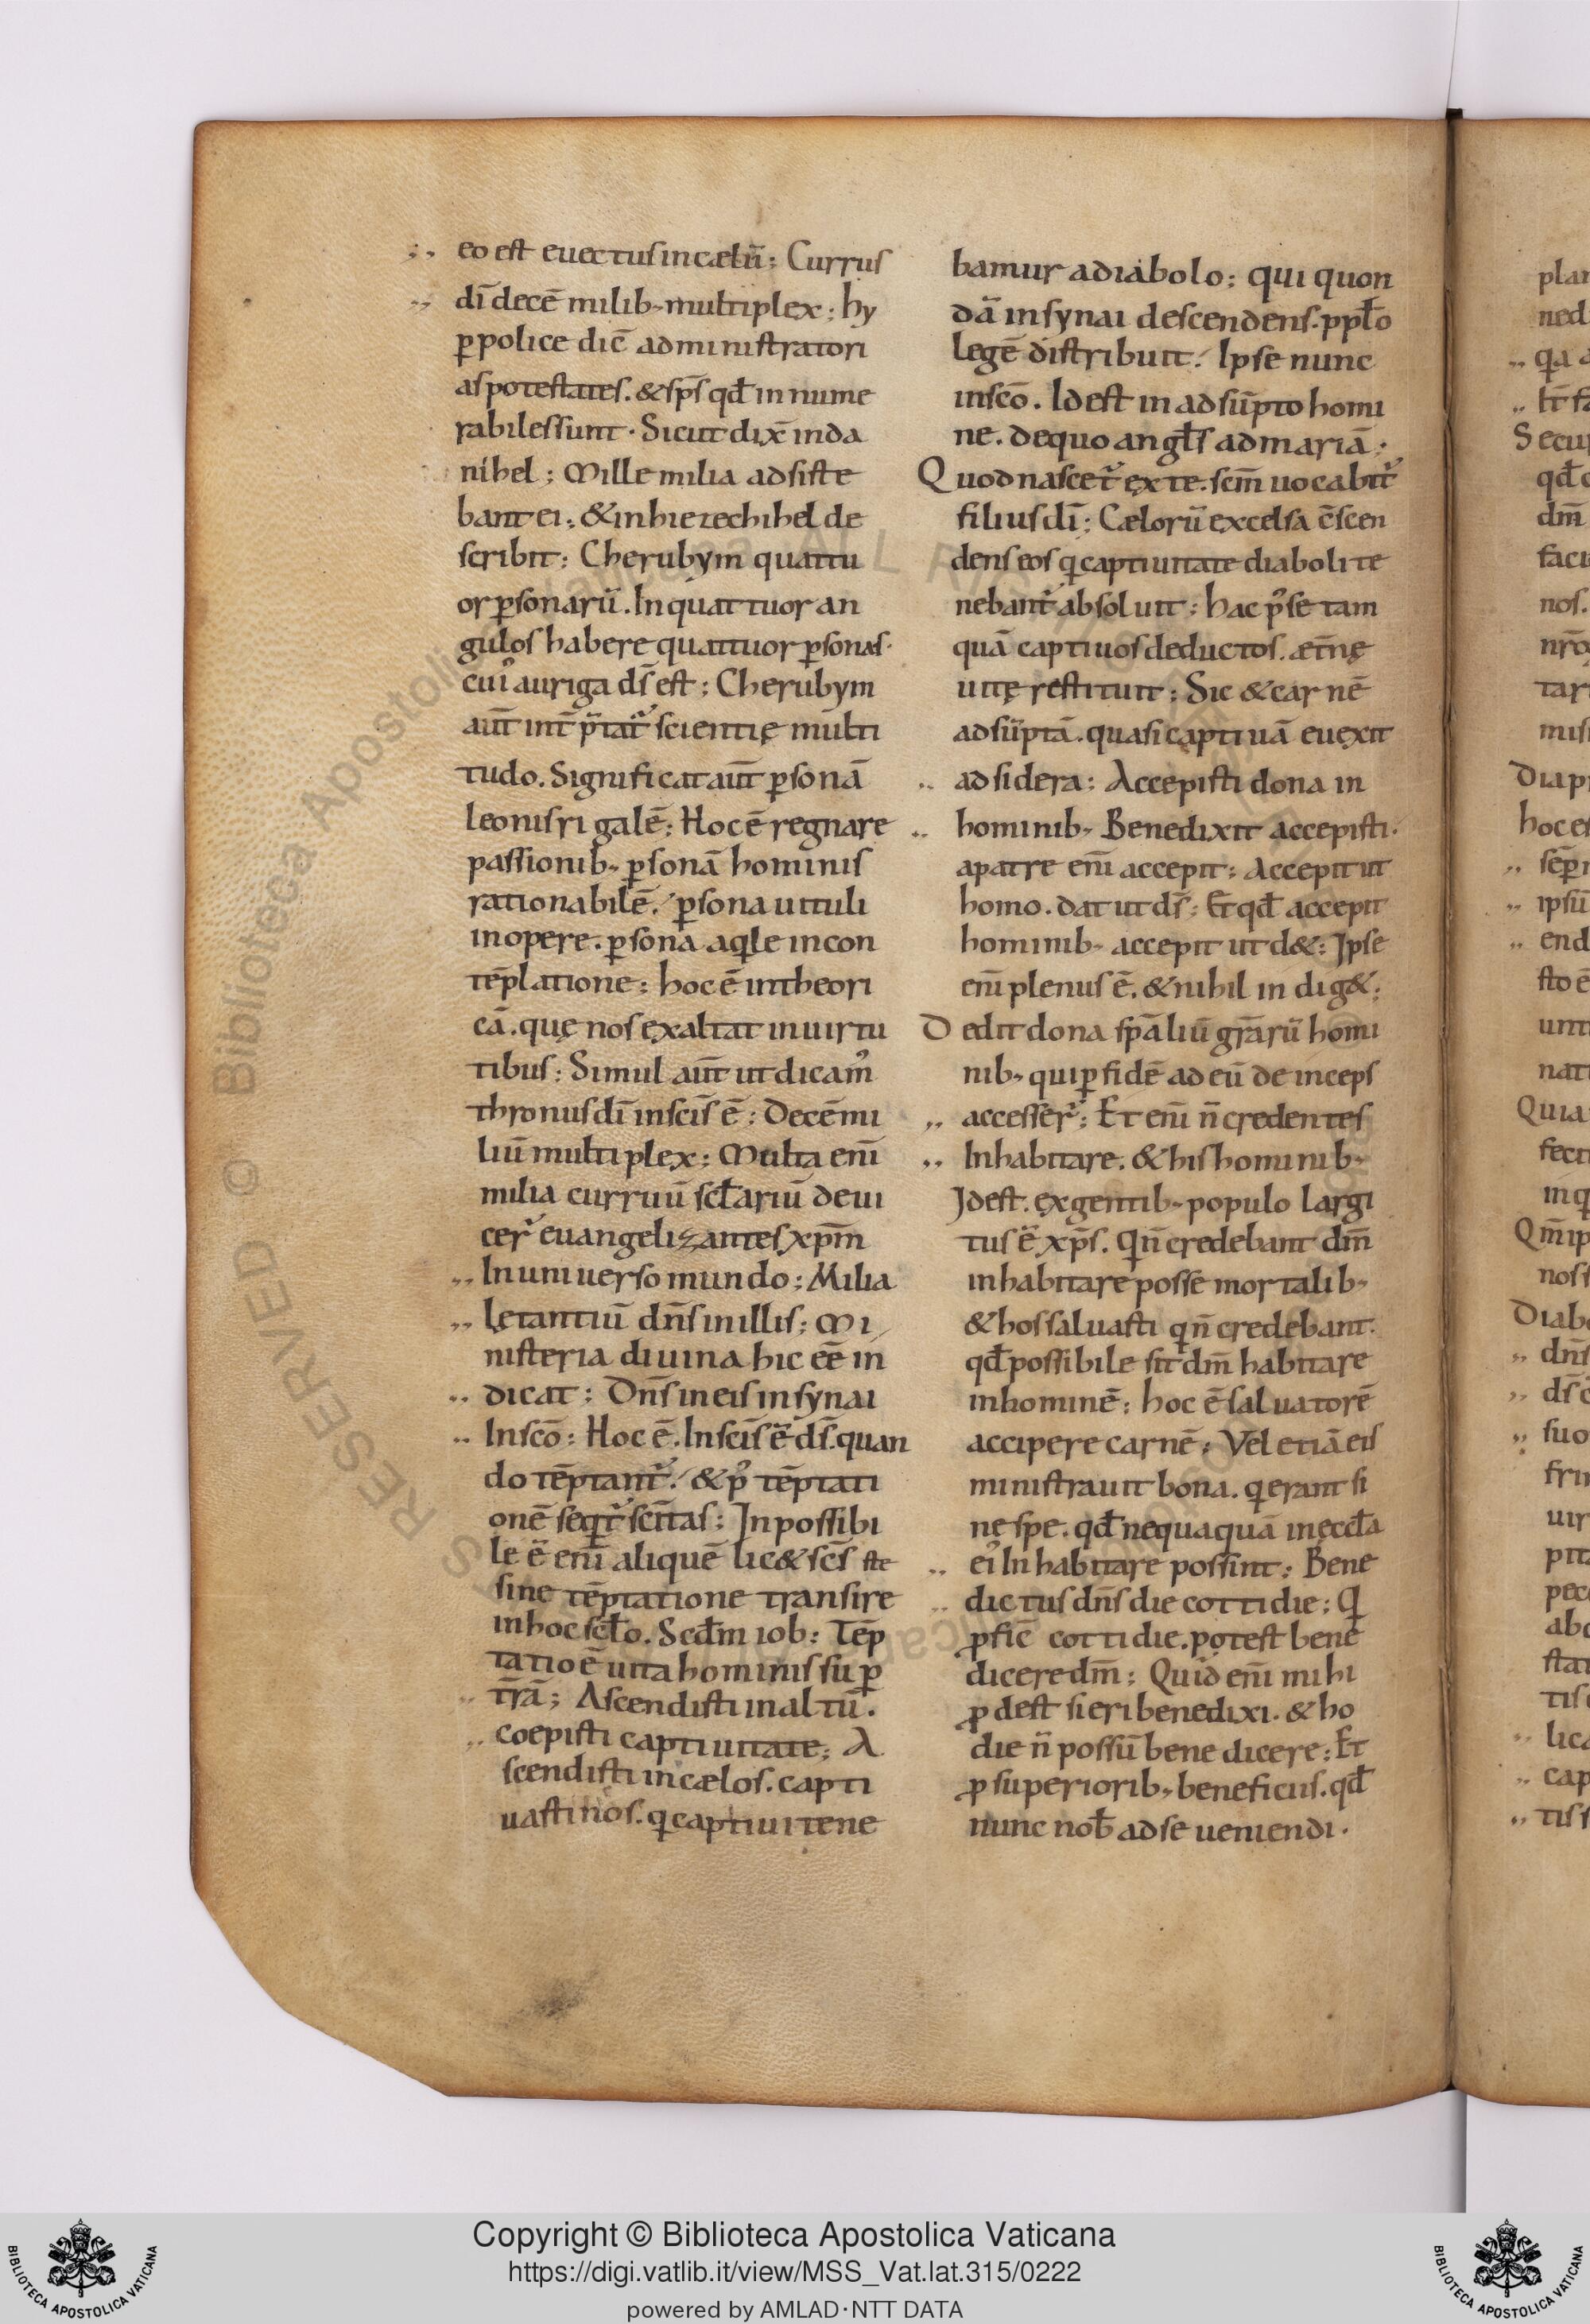 eo est euectus in cælū; Currus
dī decē milib, multiplex; hy
ꝑpolice dic̄ administratori
as potestates. & sp̄s qđ innume
rabiles sunt. Sicut dix̄ inda
nihel; Mille milia adsiste
bant ei; & in hiezechihel de
scribit; Cherubym quattu
or ꝑsonarū. In quattuor an
gulos habere quattuor ꝑsonas.
cui᾽ auriga dś est; Cherubym
aūt int̄ p̄tat᾽ scientię multi
tudo. Significat aūt ꝑsonā
leonis rigalē; Hoc ē regnare
passionib, ꝑsonā hominis
rationabilē. ꝑsona uituli
in opere. ꝑsona aqlę in con
tēplatione; hoc ē in theori
cā. quę nos exaltat in uirtu
tibus; Simul aūt ut dicam᾽
thronus dī in scīs ē; Decē mi
liū multiplex; Multa enī
milia curruū sc̄łariū deui
cer᾽ euangelizantes xp̄m
In uniuerso mundo; Milia
lętantiū dn̄s in illis; Mi
nisteria diuina hic eē in
dicat; Dn̄s in eis in synai
In scō; Hoc ē. In scīs ē dś. quan
do tēptant᾽. & p᾽ tēptati
onē seqt᾽ scītas; Inpossibi
le ē enī aliquē lic& scś ste
sine tēptatione transire
in hoc scło. Scdm iob; Tēp
tatio ē uita hominis suꝑ
trā; Ascendisti in altū.
coepisti captiuitate; A
scendisti in cælos. capti
uasti nos. q captiui tene
bamur a diabolo; qui quon
dā in synai descendens. ppło
legē distribuit. Ipse nunc
in scō. Id est in adsūpto homi
ne. de quo angłs ad mariā;
Quod nascet᾽ ex te. scm̄ uocabit᾽
filius dī; Cælorū excelsa c̄scen
dens eos q captiuitate diaboli te
nebant᾽ absoluit; hac p᾽ se tam
quā captiuos deductos. æt̄nę
uitę restituit; Sic & carnē
adsūptā. quasi captiuā euexit
ad sidera; Accepisti dona in
hominib, Benedixit accepisti.
a patre enī accepit; Accepit ut
homo. dat ut dś; Et qđ accepit
hominib, accepit ut d&; Ipse
enī plenus ē. & nihil indig&;
Dedit dona sp̄aliū grārū homi
nib, qui ꝑ fidē ad eū deinceps
accesser᾽; Et enī n̄ credentes
Inhabitare. & his hominib,
Id est. ex gentib, populo largi
tus ē xp̄s. q n̄ credebant dm̄
inhabitare posse mortalib,
& hos saluasti q n̄ credebant.
qđ possibile sit dm̄ habitare
in hominē; hoc ē saluatorē
accipere carnē; Vel etiā eis
ministrauit bona. q erant si
ne spe. qđ nequaquā in ęccła
ei᾽ Inhabitare possint; Bene
dictus dn̄s die cottidie; Q
ꝓfic̄ cottidie. potest bene
dicere dm̄; Quid enī mihi
ꝓdest si eri benedixi. & ho
die n̄ possū benedicere; Et
ꝓ superiorib, beneficiis. qđ
nunc nob̄ ad se ueniendi.
Copyright © Biblioteca Apostolica Vaticana
https://digi.vatlib.it/view/MSS_Vat.lat.315/0222
powered by AMLAD·NTT DATA